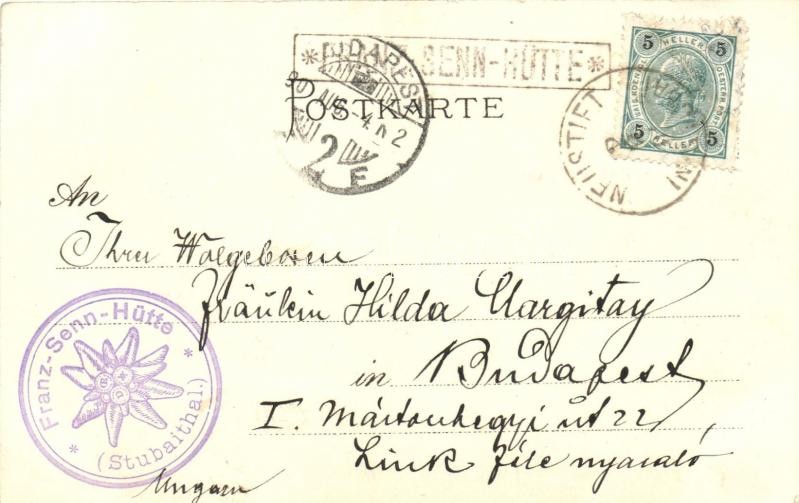 * FRANZ SENN-HÜTTE *
BUDAPEST
2
E
5 HELLER 5
KAIS. KOENIGL. OESTERR. POST
5 HELLER 5
NEUSTIFT
POSTKARTE
An
Ihre Wolgeboren
Fräulein Hilda Margitay
in Budapest
I. Mártonhegyi út 22,
Link féle nyaraló
Ungarn
Franz-Senn-Hütte
* (Stubaithal.) *